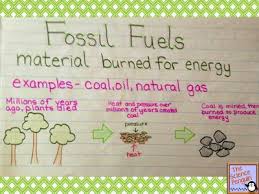 Fossil Fuels
material burned for energy
examples- coal, oil, natural gas
Millions of years
ago, plants died
Heat and pressure over
millions of years created
coal
pressure
heat
Coal is mined, then
burned to produce
energy
The
Science
Penguin